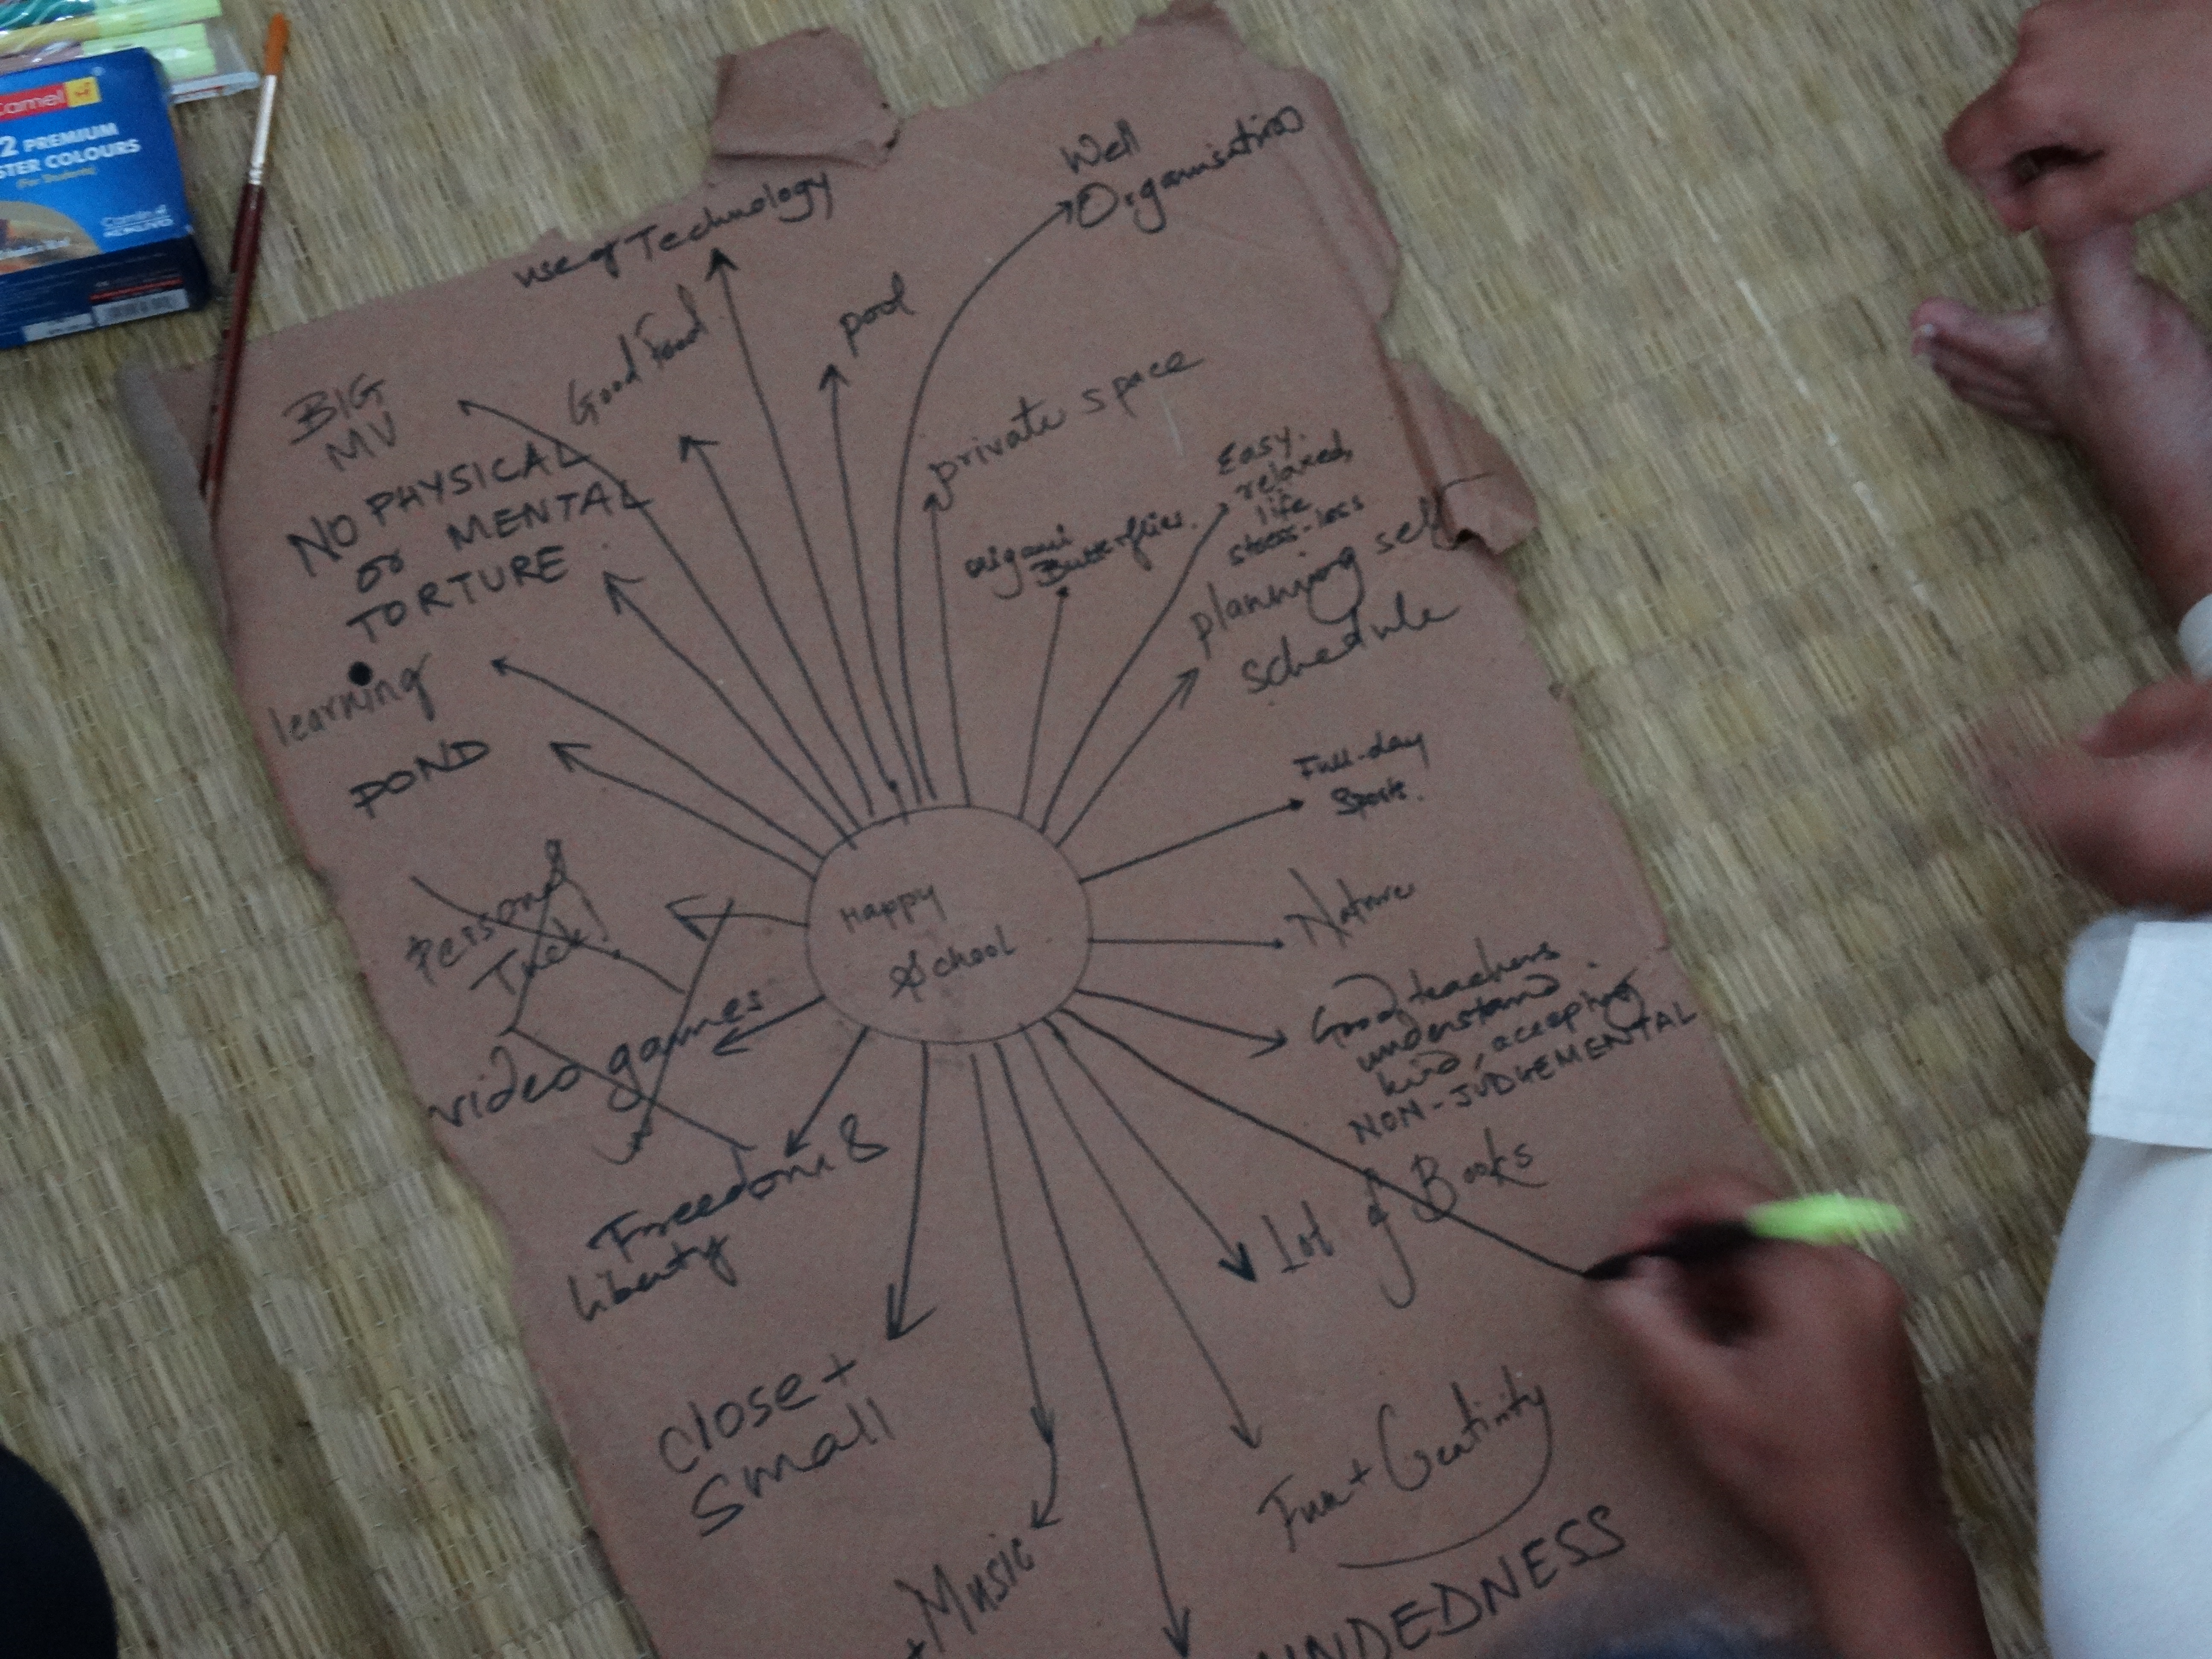 Camel
2 PREMIUM
STER COLOURS
(For Students)
Well
Organisation
use of Technology
Good Food
pool
private space
BIG
MV
NO PHYSICAL
or MENTAL
TORTURE
origami
Butterflies.
Easy.
relaxed
life
stress-less
planning self
schedule
learning
POND
Full-day
Sports.
Personal
Nature
Happy
School
video games
Good teachers
understand
kind, accepting
NON-JUDGEMENTAL
Freedom &
liberty
Lot of Books
close +
small
Fun + Creativity
+ Music
INDEDNESS